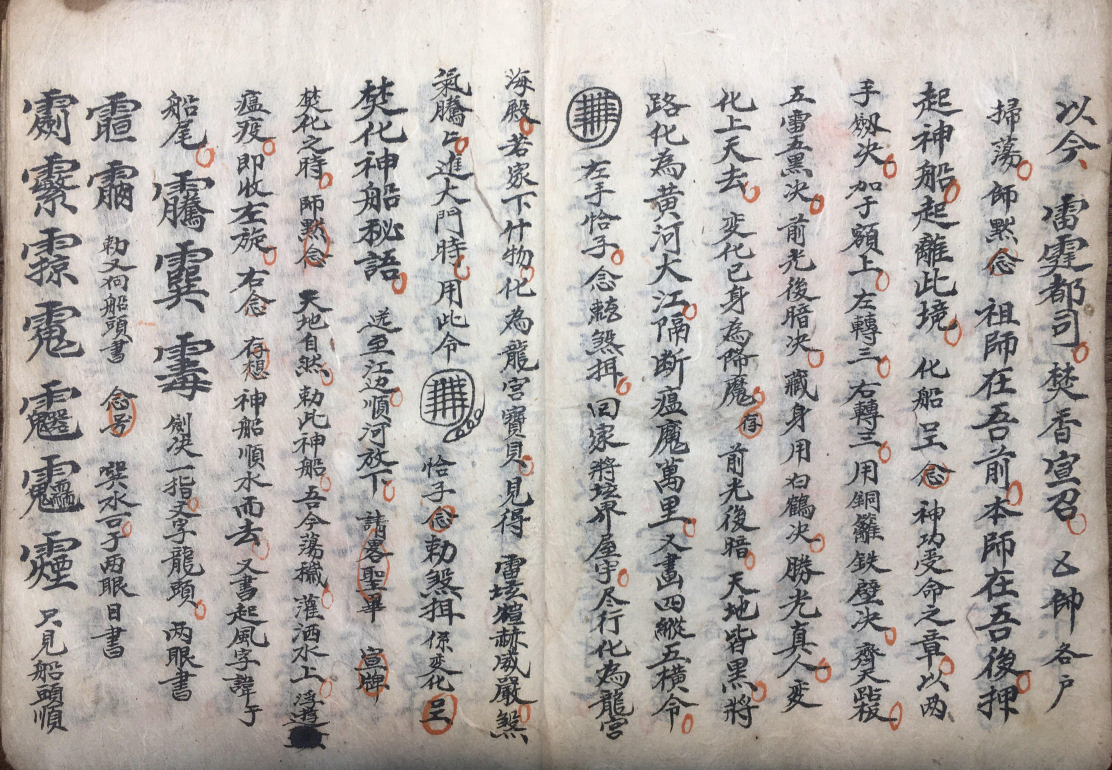 以今、雷霆都司。焚香宣召。乙師各户
掃蕩。師黙念 祖師在吾前。本師在吾後。押
起神船。起離此境。 化船呈念 神功受命之章。以両
手劔决。加于額上。左轉三。右轉三。用銅籬鉄壁决。齊天
五雷五黑决。前光後暗决。藏身用白鶴决。勝光真人。变
化上天去。变化已身為降魔。存 前光後暗。天地皆黑。將
路化為黄河大江。隔断瘟魔萬里。又畫四縱五横令。
左手恰子。念 煞揖。回家將坛界屋宇。尽行化為龍宮
海殿。若家下什物。化為龍宮寶貝。見得 雷坛 赫威嚴。煞
氣騰上。進大門時。用此令 恰子念勅煞揖 係变化呈
焚化神船秘語。 送至江边。順河放下。 請 聖畢 宣牒
焚化之時。師黙念 天地自然。勅此神船。吾今蕩穢。灌洒水上。浮遊
瘟疫。即收左旋。右念 存想 神船順水而去。又書起風字諱于
船尾。 劍决一指。文字龍頭。両眼書
勅文何船頭書 念咒 噀水 子両眼日書
只見船頭順